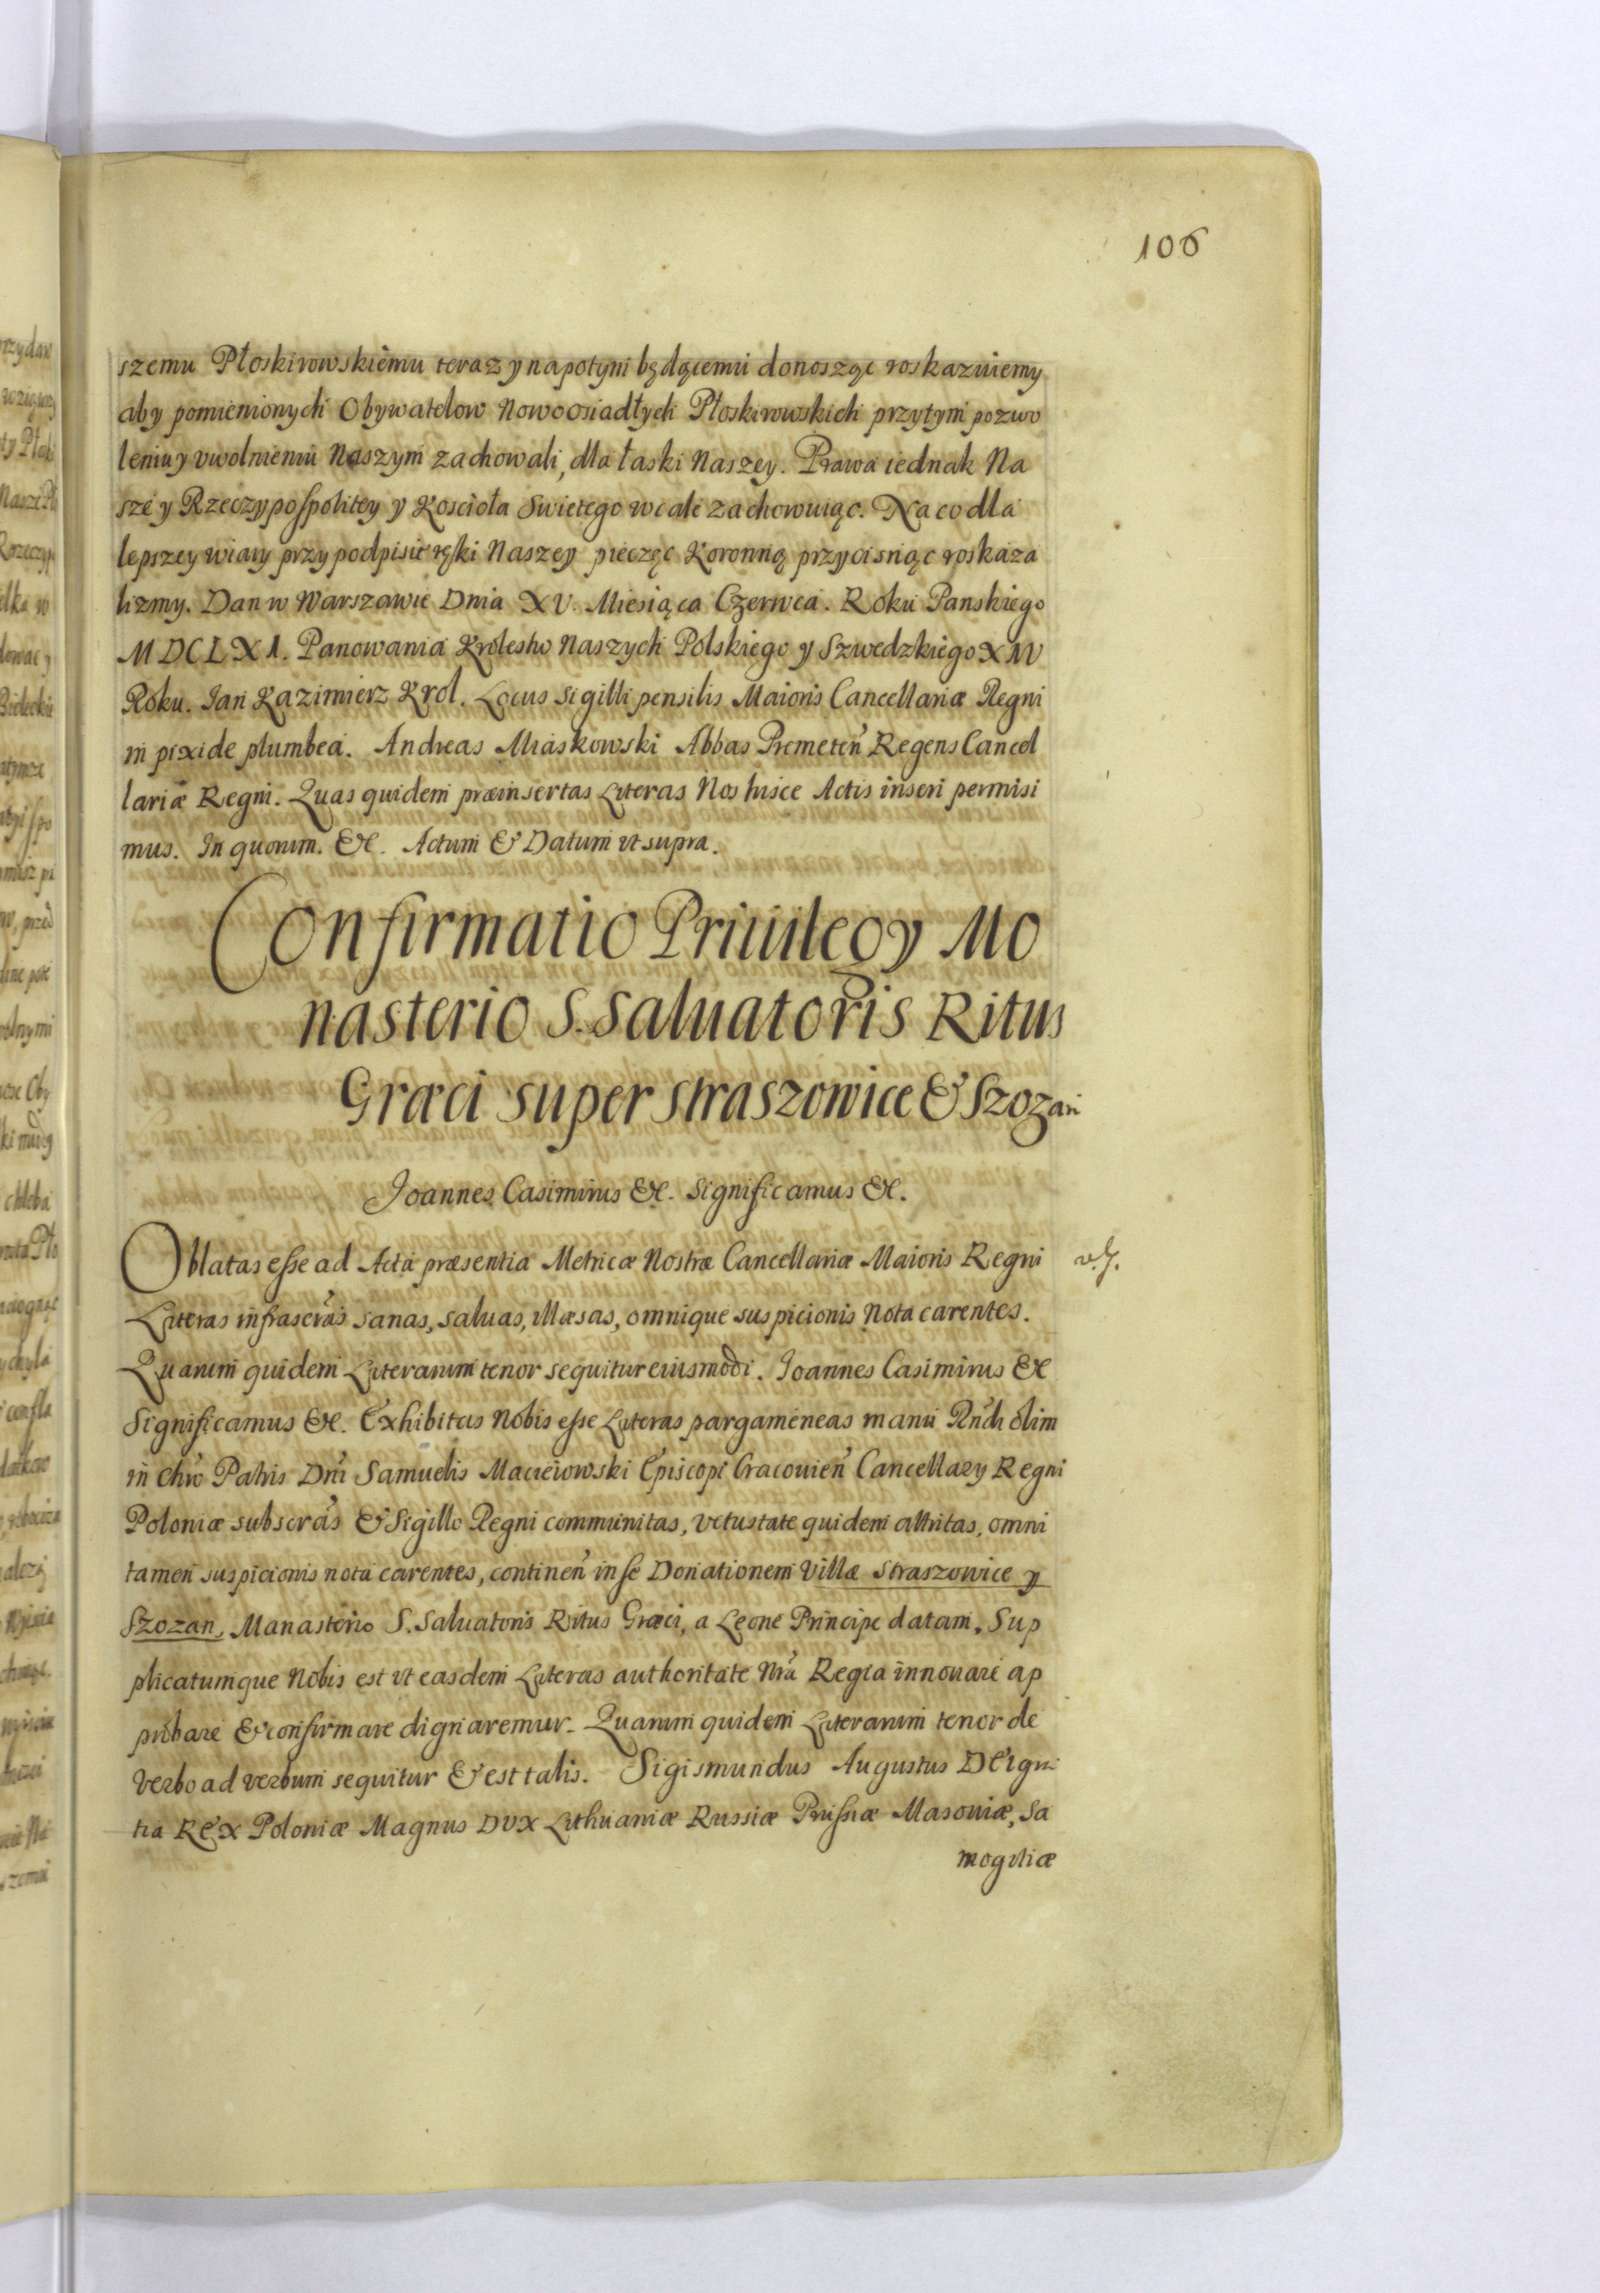 106
szemu Płoskirowskiemu teraz y napotym będącemu donosząc roskazuiemy
aby pomienionych Obywatelow Nowoosiadłych Płoskirowskich przytym pozwo
leniu y uwolnieniu Naszym zachowali, dla łaski Naszey. Prawa iednak Na
sze y Rzeczypospolitey y Kościoła Swietego wcale zachowuiąc. Na co dla
lepszey wiary przy podpisie ręki Naszey pieczęc Koronną przycisnąc roskaza
lizmy. Dan w Warszawie Dnia XV. Miesiąca Czerwca. Roku Panskiego
MDCLXI. Panowania Krolestw Naszych Polskiego y Szwedzkiego XIV
Roku. Jan Kazimierz Krol. Locus sigilli pensilis Maioris Cancellariæ Regni
in pixide plumbea. Andreas Miaskowski Abbas Premeteñ Regens Cancel
lariæ Regni. Quas quidem præinsertas Literas Nos hisce Actis inseri permisi
mus. In quorum. &c. Actum & Datum ut supra.
Confirmatio Priuilegy Mo
nasterio S. Saluatoris Ritus
Græci super Straszowice & Szozan
Joannes Casimirus &c. Significamus &c.
Oblatas esse ad Acta præsentia Metricæ Nostræ Cancellariæ Maioris Regni
Literas infrascrãs sanas, saluas, illæsas, omnique suspicionis nota carentes.
Quarum quidem Literarum tenor sequitur eiusmodi. Joannes Casimirus &c
Significamus &c. Exhibitas Nobis esse Literas pargameneas manu Rñdi olim
in Chro Patris Dñi Samuelis Macieiowski Episcopi Cracouieñ Cancellary Regni
Poloniæ subscrãs & Sigillo Regni communitas, vetustate quidem attritas, omni
tamen suspicionis nota carentes, contineñ in se Donationem Villæ Straszowice y
Szozan, Manasterio S. Saluatoris Ritus Græci, a Leone Principe datam. Sup
plicatumque Nobis est ut easdem Literas authoritate Nrã Regia innouare ap
probare & confirmare dignaremur. Quarum quidem Literarum tenor de
verbo ad verbum sequitur & est talis. Sigismundus Augustus DEI gra
tia REX Poloniæ Magnus DUX Lithuaniæ Russiæ Prussiæ Masouiæ, Sa
mogitiæ